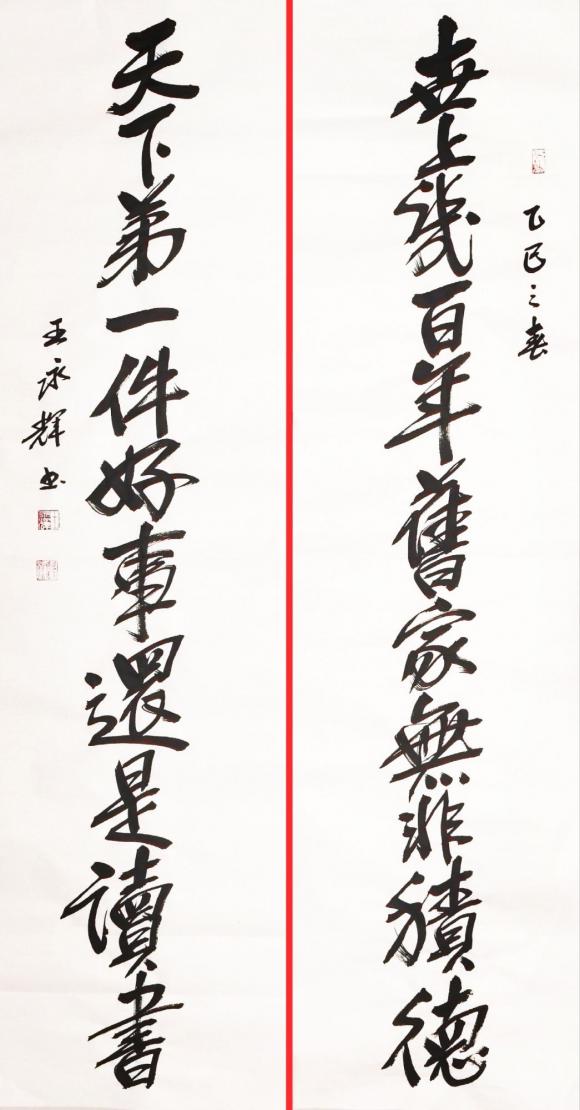 乙巳之春
世上幾百年舊家無非積德
天下第一件好事還是讀書
王永輝書